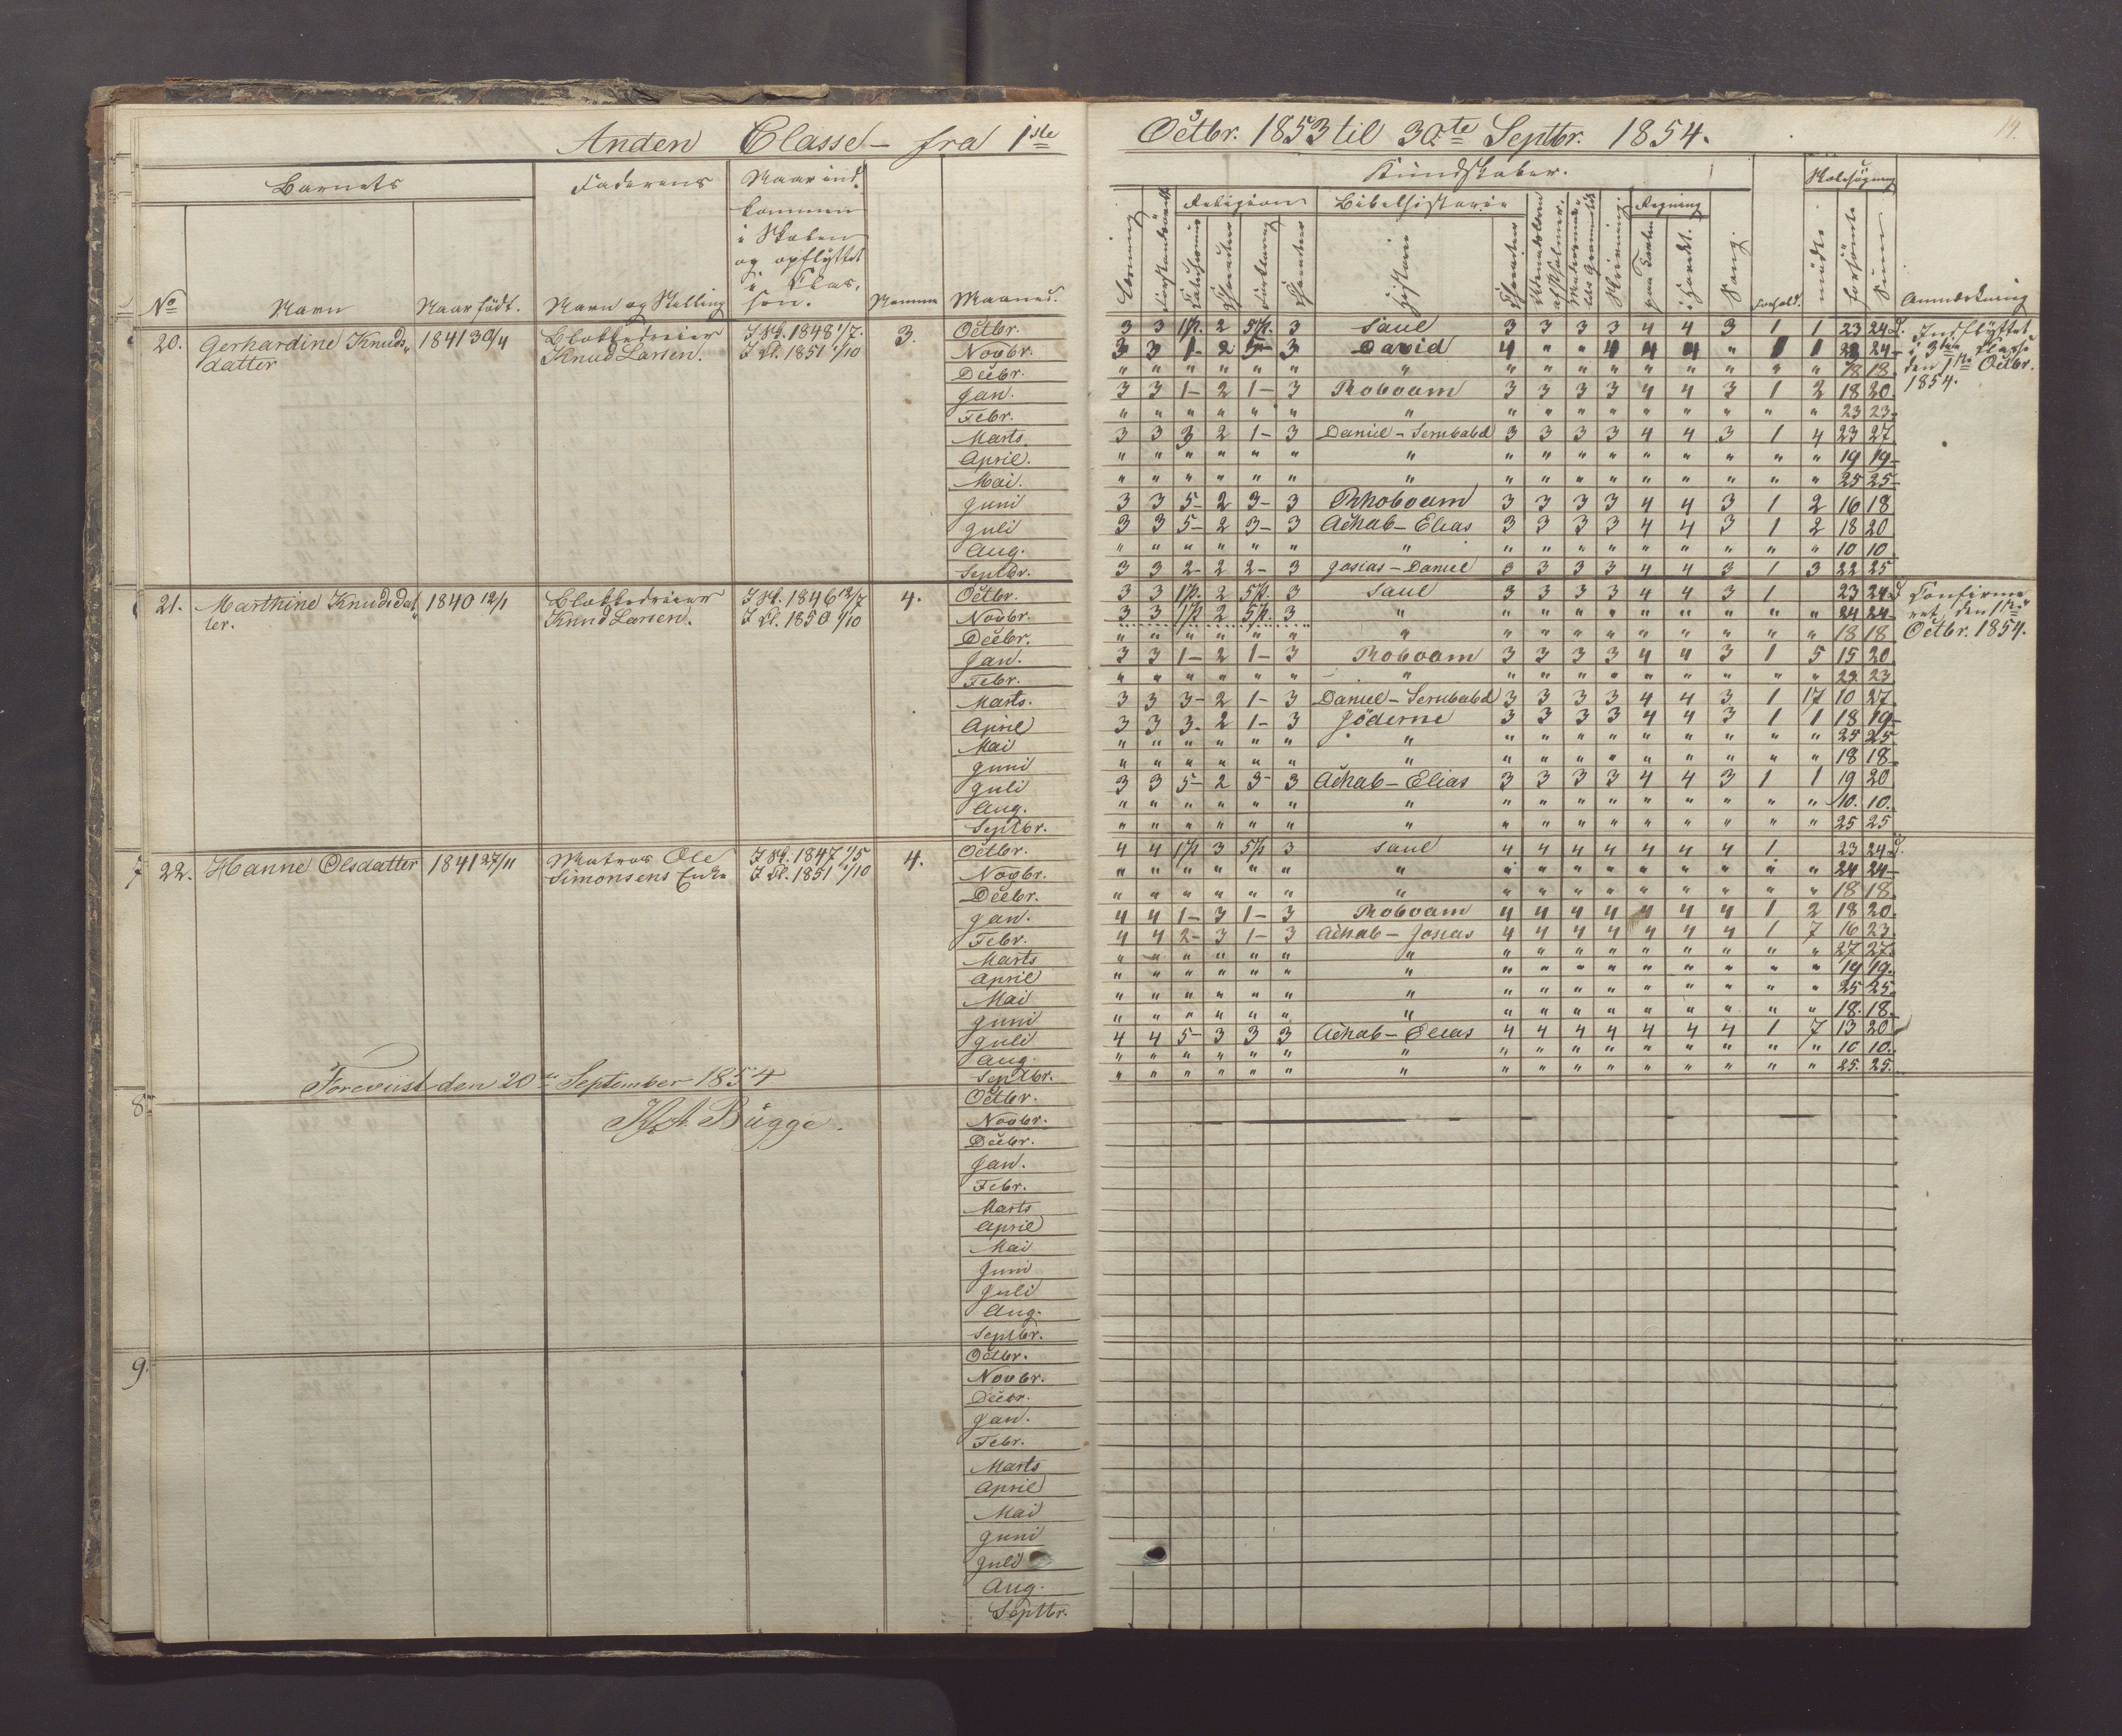 Anden Classe – fra 1ste Octbr. 1853 til 30te Septbr. 1854.
14.
Barnets Faderens Naar ind- Kundskaber. Skolesøgning
kommen
i Skolen Religion Bibelhistorie Regning
og opflyttet
i Clas-
No Navn Naar født. Navn og Stilling sen. Nummer Maaned. Historie Sang. Forhold. mødte forsømte Sum Anmærkning
20. Gerhardine Knuds- 1841 30/4 Blokkedreier I Sk. 1848 1/7. 3. Octbr. 3 3 1ste P. 2 5te P. 3 Saul 3 3 3 3 4 4 3 1 1 23 24 D. Indflyttet
datter Knud Larsen. I Cl. 1851 1/10 Novbr. 3 3 1– 2 5– 3 David 4 " " 4 4 4 " 1 1 23 24– i 3die Classe
Decbr. " " " " " " " " " " " " " " " " 18 18. den 1ste Octbr.
Jan. 3 3 1– 2 1– 3 Roboam 3 3 3 3 4 4 3 1 2 18 20. 1854.
Febr. " " " " " " " " " " " " " " " " 23 23–
Marts. 3 3 3 2 1– 3 Daniel – Serubabel 3 3 3 3 4 4 3 1 4 23 27
April. " " " " " " " " " " " " " " " " 19 19–
Mai. " " " " " " " " " " " " " " " " 25 25–
Juni 3 3 5– 2 3– 3 Rhoboam 3 3 3 3 4 4 3 1 2 16 18
Juli 3 3 5– 2 3– 3 Achab – Elias 3 3 3 3 4 4 3 1 2 18 20
Aug. " " " " " " " " " " " " " " " " 10 10
Septbr. 3 3 2– 2 2– 3 Josias – Daniel 3 3 3 3 4 4 3 1 3 22 25
21. Marthine Knudsdat- 1840 12/1 Blokkedreier I Sk. 1846 12/7 4. Octbr. 3 3 1ste P. 2 5te P. 3 Saul 3 3 3 3 4 4 3 1 23 24 D Confirme-
ter. Knud Larsen. I Cl. 1850 1/10 Novbr. 3 3 1ste P 2 5te P. 3 " " " " " " " " " " 24 24– ret den 1ste
Decbr. " " " " " " " " " " " " " " " " 18 18 Octbr. 1854.
Jan. 3 3 1– 2 1– 3 Roboam 3 3 3 3 4 4 3 1 5 15 20
Febr. " " " " " " " " " " " " " " " " 23 23
Marts. 3 3 3– 2 1– 3 Daniel – Serubabel 3 3 3 3 4 4 3 1 17 10 27
April 3 3 3– 2 1– 3 Jöderne 3 3 3 3 4 4 3 1 1 18 19–
Mai " " " " " " " " " " " " " " " " 25 25
Juni " " " " " " " " " " " " " " " " 18 18
Juli 3 3 5– 2 3– 3 Achab – Elias 3 3 3 3 4 4 3 1 1 19 20
Aug. " " " " " " " " " " " " " " " " 10. 10.
Septbr. " " " " " " " " " " " " " " " " 25 25
7 22. Hanne Olsdatter 1841 27/11 Matros Ole I Sk. 1847 1/5 4. Octbr. 4 4 1ste P 3 5te P 3 Saul 4 4 4 4 4 4 4 1 23 24 D.
Simonsens Enke I Cl. 1851 1/10 Novbr. " " " " " " " " " " " " " " " " 24 24–
Decbr. " " " " " " " " " " " " " " " " 18 18
Jan. 4 4 1– 3 1– 3 Roboam 4 4 4 4 4 4 4 1 2 18 20.
Febr. 4 4 2– 3 1– 3 Achab – Josias 4 4 4 4 4 4 4 1 7 16 23.
Marts " " " " " " " " " " " " " " " " 27 27.
April " " " " " " " " " " " " " " " " 19 19.
Mai " " " " " " " " " " " " " " " " 25 25.
Juni " " " " " " " " " " " " " " " " 18. 18.
Juli 4 4 5– 3 3 3 Achab – Elias 4 4 4 4 4 4 4 1 7 13 20
Aug. " " " " " " " " " " " " " " " " 10 10.
Septbr. " " " " " " " " " " " " " " " " 25. 25.
Foreviist den 20de September 1854
8. Octbr.
Bugge.
Novbr.
Decbr.
Jan.
Febr.
Marts
April
Mai
Juni
Juli
Aug.
Septbr.
9. Octbr.
Novbr.
Decbr.
Jan.
Febr.
Marts
April
Mai
Juni
Juli
Aug.
Septbr.